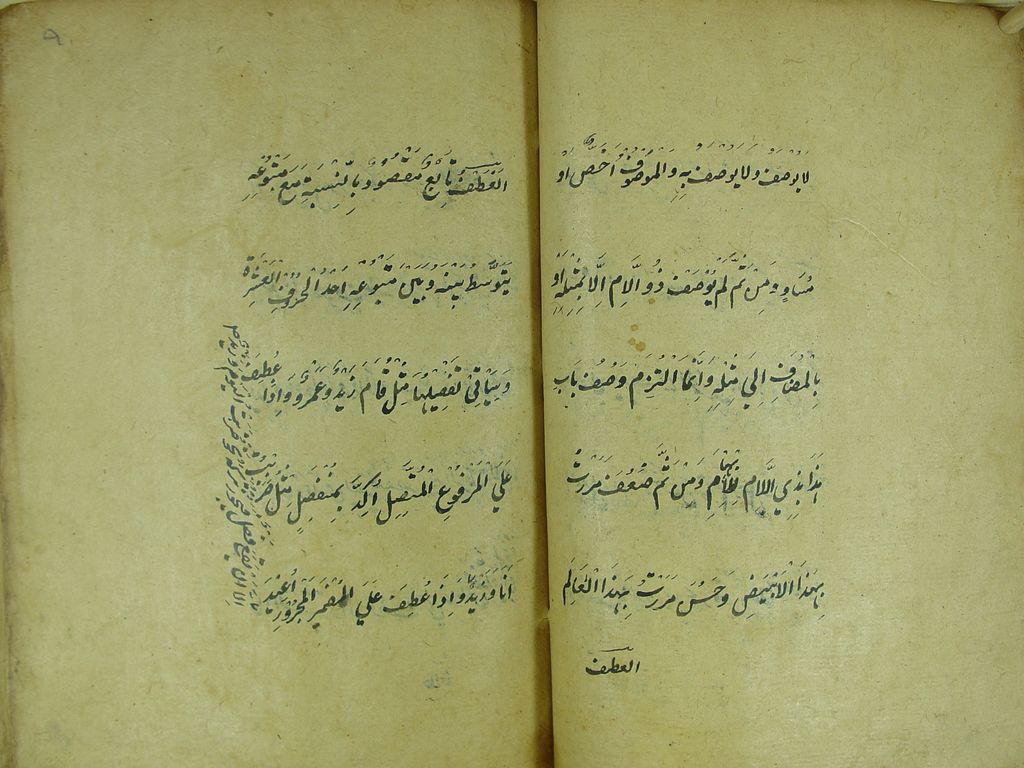 لا يوصف ولا يوصف به والموصوف أخص او
مُسَاوٍ وَمِنْ ثَمَّ لَمْ يُوْصَفْ ذُو الَّلامِ اِلَّا بِمِثْلِه اَوْ
بِالْمُضَافِ اِلَي مِثْلِهِ وَاِنَّمَا الْتُزِمَ وَصْفُ بَابِ
هٰذَا بِذِي الَّلامِ لِلْاِبْهَامِ وَمِنْ ثَمَّ ضَعُفَ مَرَرْتُ
بِهٰذَا الْاَبْيَضِ وَحَسُنَ مَرَرْتُ بِهٰذَا الْعَالِمِ
العطف
اَلْعَطْفُ تَابِعٌ مَقْصُودٌ بِالنِّسْبَةِ مَعَ مَتْبُوعِهِ
يَتَوَسَّطُ بَيْنَهُ وَبَيْنَ مَتْبُوعِهِ اَحَدُ الْحُرُوْفِ الْعَشَرَةِ
وَسَيَاْتِيْ تَفْصِيْلُهَا مِثْلُ قَامَ زَيْدٌ وَعَمْرٌو وَاِذَا عُطِفَ
عَلَي الْمَرْفُوْعِ الْمُتَّصِلِ اُكِّدَ بِمُنْفَصِلٍ مِثْلُ ضَرَبْتُ
اَنَا وَزَيْدٌ وَاِذَا عُطِفَ عَلَي الْمُضْمَرِ الْمَجْرُوْرِ اُعِيْدَ
الا ان يقع فصل فيجوز تركه نحو ضربت اليوم وزيد